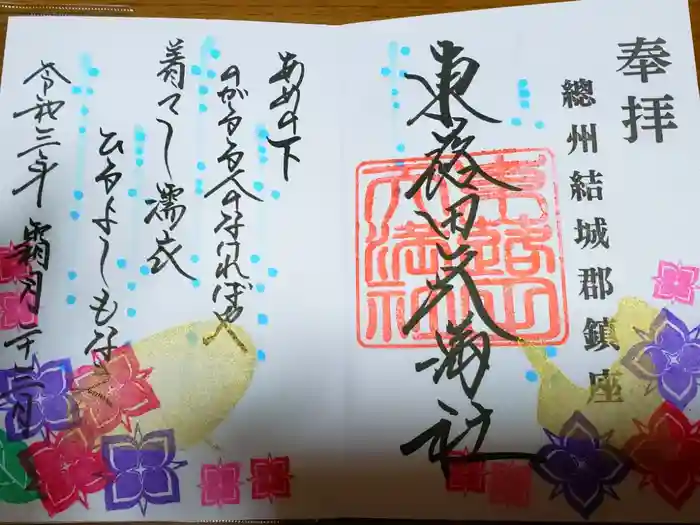 奉拝
總州結城郡鎮座
東蕗田天満社
東蕗田
天満社
あめの下
のがるる人のなければや
着てし濡衣
ひるよしもなき
令和三年 霜月二十三日